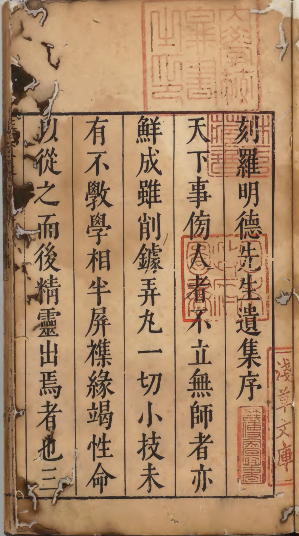 刻羅明德先生遺集序
天下事俲人者不立無師者亦
鮮成雖削鐻弄丸一切小技未
有不斅學相半屏襍緣竭性命
以從之而後精靈出焉者也三
淺草文庫